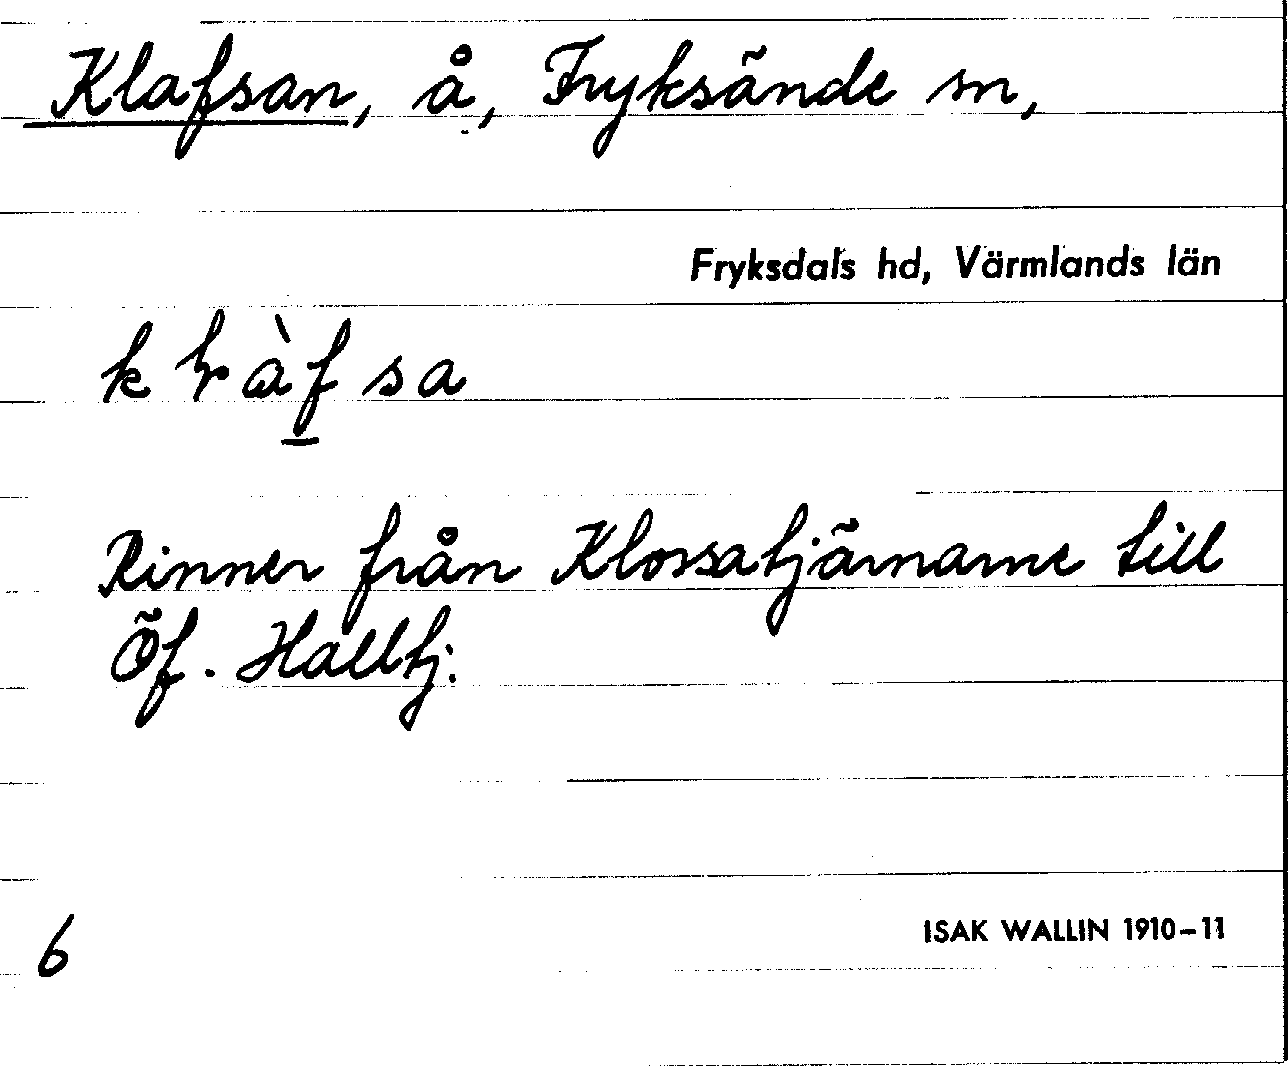 Klafsan, å, Fryksände sn,
Fryksdals hd, Värmlands län
Rinner från Klossatjärnarne till
Öf. Halltj.
6
ISAK WALLIN 1910-11